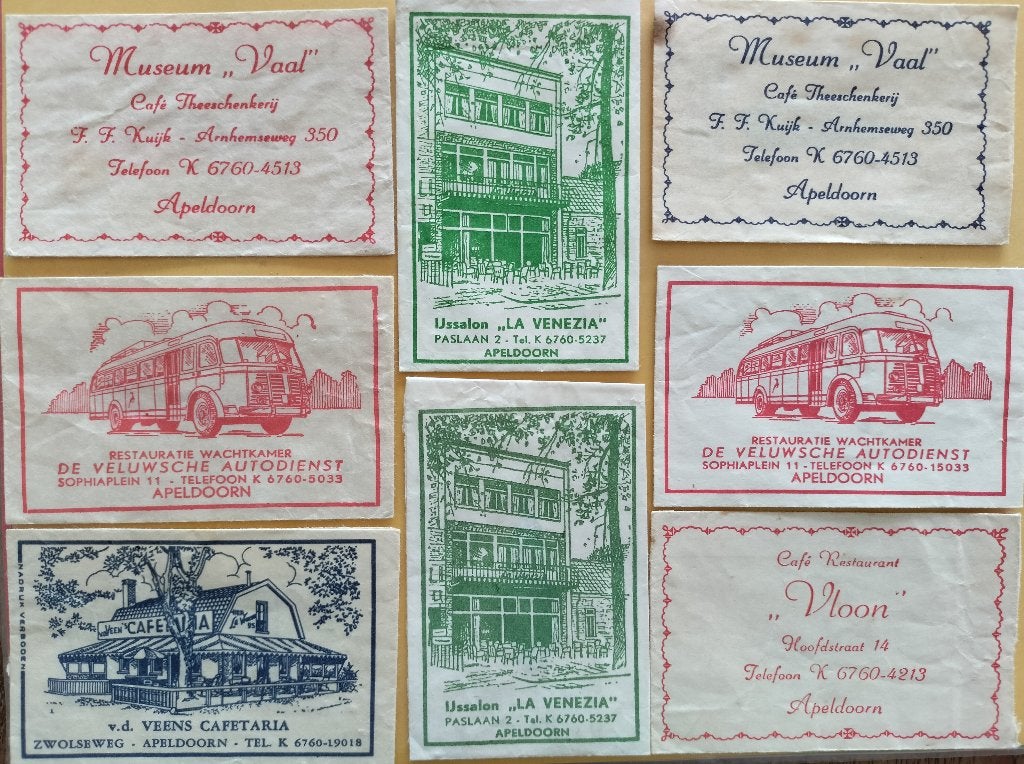 Museum „Vaal"
Café Theeschenkerij
F. F. Kuijk - Arnhemseweg 350
Telefoon K 6760-4513
Apeldoorn
IJssalon „LA VENEZIA"
PASLAAN 2 - Tel. K 6760-5237
APELDOORN
Museum „Vaal"
Café Theeschenkerij
F. F. Kuijk - Arnhemseweg 350
Telefoon K 6760-4513
Apeldoorn
RESTAURATIE WACHTKAMER
DE VELUWSCHE AUTODIENST
SOPHIAPLEIN 11 - TELEFOON K 6760-5033
APELDOORN
RESTAURATIE WACHTKAMER
DE VELUWSCHE AUTODIENST
SOPHIAPLEIN 11 - TELEFOON K 6760-15033
APELDOORN
NADRUK VERBODEN
VEEN'S CAFETARIA
v.d. VEENS CAFETARIA
ZWOLSEWEG - APELDOORN - TEL. K 6760-19018
IJssalon „LA VENEZIA"
PASLAAN 2 - Tel. K 6760-5237
APELDOORN
Café Restaurant
„Vloon"
Hoofdstraat 14
Telefoon K 6760-4213
Apeldoorn